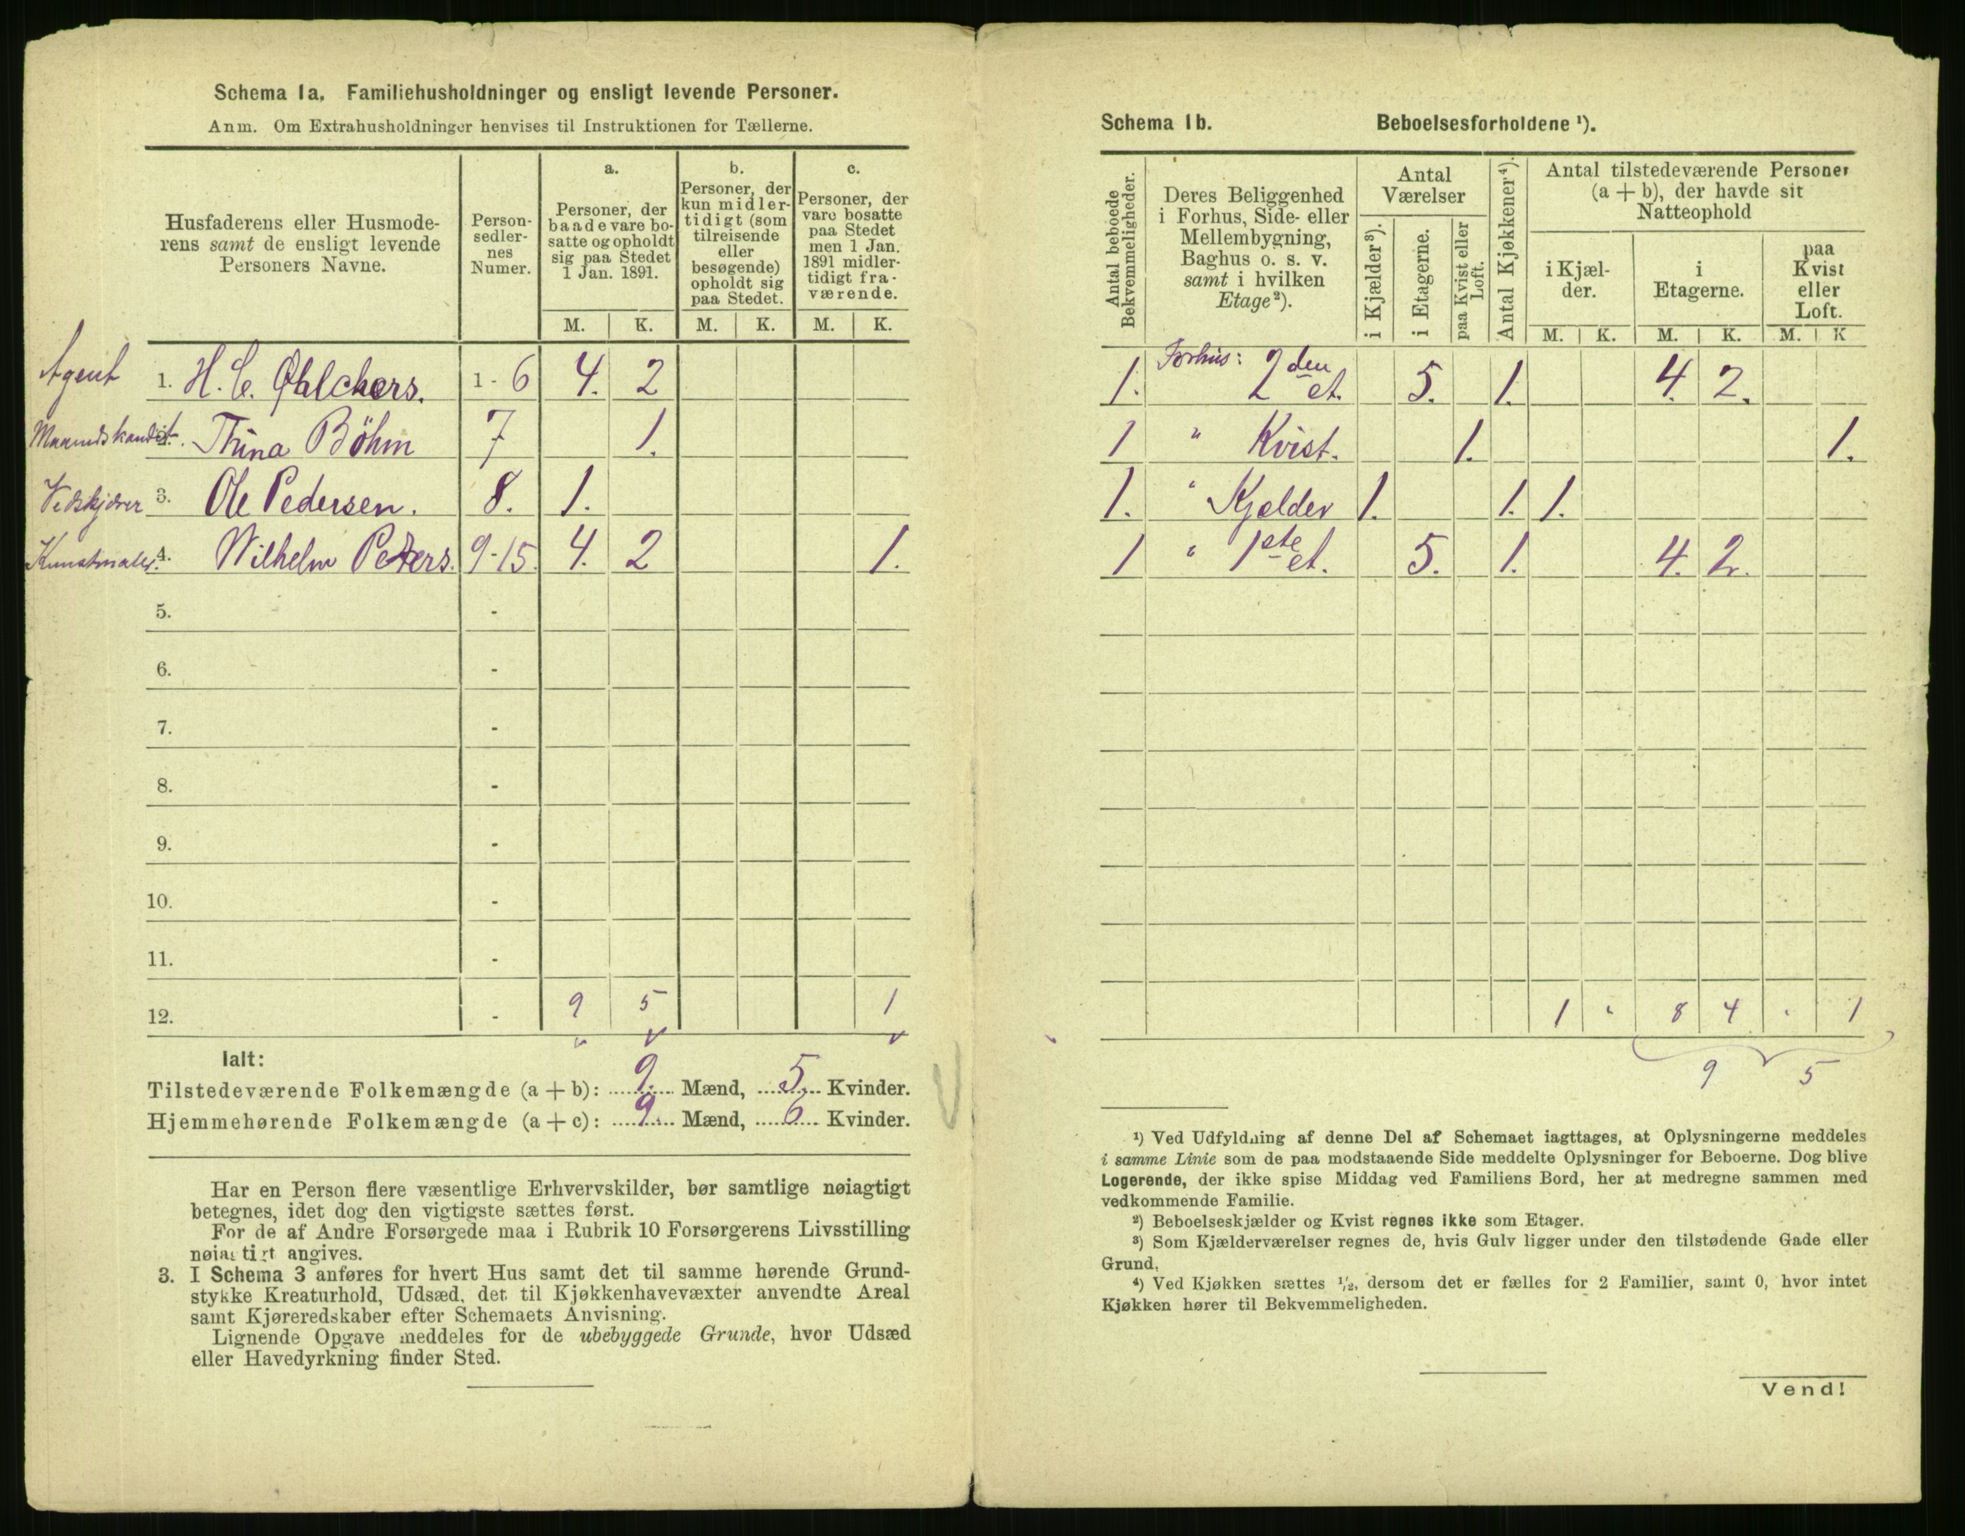 Schema 1a. Familiehusholdninger og ensligt levende Personer.
Anm. Om Extrahusholdninger henvises til Instruktionen for Tællerne.
Husfaderens eller Husmode-
rens samt de ensligt levende
Personers Navne.
Person-
sedler-
nes
Numer.
a.
Personer, der
baade vare bo-
satte og opholdt
sig paa Stedet
1 Jan. 1891.
b.
Personer, der
kun midler-
tidigt (som
tilreisende
eller
besøgende)
opholdt sig
paa Stedet.
c.
Personer, der
vare bosatte
paa Stedet
men 1 Jan.
1891 midler-
tidigt fra-
værende.
M. K. M. K. M. K.
Agent 1. H. C. Øhlckers. 1 - 6 4. 2
Thina Böhm 7 1.
Vedskjærer 3. Ole Pedersen. 8. 1.
Kunstmaler. 4. Wilhelm Peters. 9-15. 4. 2 1.
5. -
6. -
7. -
8. -
9. -
10. -
11. -
12. - 9 5 1
Ialt:
Tilstedeværende Folkemængde (a + b): 9. Mænd, 5. Kvinder.
Hjemmehørende Folkemængde (a + c): 9. Mænd, 6 Kvinder.
Har en Person flere væsentlige Erhvervskilder, bør samtlige nøiagtigt
betegnes, idet dog den vigtigste sættes først.
For de af Andre Forsørgede maa i Rubrik 10 Forsørgerens Livsstilling
nøiagtigt angives.
3. I Schema 3 anføres for hvert Hus samt det til samme hørende Grund-
stykke Kreaturhold, Udsæd, det til Kjøkkenhavevæxter anvendte Areal
samt Kjøreredskaber efter Schemaets Anvisning.
Lignende Opgave meddeles for de ubebyggede Grunde, hvor Udsæd
eller Havedyrkning finder Sted.
Schema 1b. Beboelsesforholdene ¹).
Antal beboede
Bekvemmeligheder.
Deres Beliggenhed
i Forhus, Side- eller
Mellembygning,
Baghus o. s. v.
samt i hvilken
Etage ²).
Antal
Værelser
i Kjælder ³).
i Etagerne.
paa Kvist eller
Loft.
Antal Kjøkkener ⁴).
Antal tilstedeværende Personer
(a + b), der havde sit
Natteophold
i Kjæl-
der.
i
Etagerne.
paa
Kvist
eller
Loft.
M. K. M. K. M. K
1. Forhus: 2den et. 5. 1. 4. 2.
1 " Kvist. 1. 1.
1. " Kjælder 1. 1. 1.
1 " 1ste et. 5. 1. 4. 2.
1 " 8 4 " 1
9 5
¹) Ved Udfyldning af denne Del af Schemaet iagttages, at Oplysningerne meddeles
i samme Linie som de paa modstaaende Side meddelte Oplysninger for Beboerne. Dog blive
Logerende, der ikke spise Middag ved Familiens Bord, her at medregne sammen med
vedkommende Familie.
²) Beboelseskjælder og Kvist regnes ikke som Etager.
³) Som Kjælderværelser regnes de, hvis Gulv ligger under den tilstødende Gade eller
Grund.
⁴) Ved Kjøkken sættes ½, dersom det er fælles for 2 Familier, samt 0, hvor intet
Kjøkken hører til Bekvemmeligheden.
Vend!